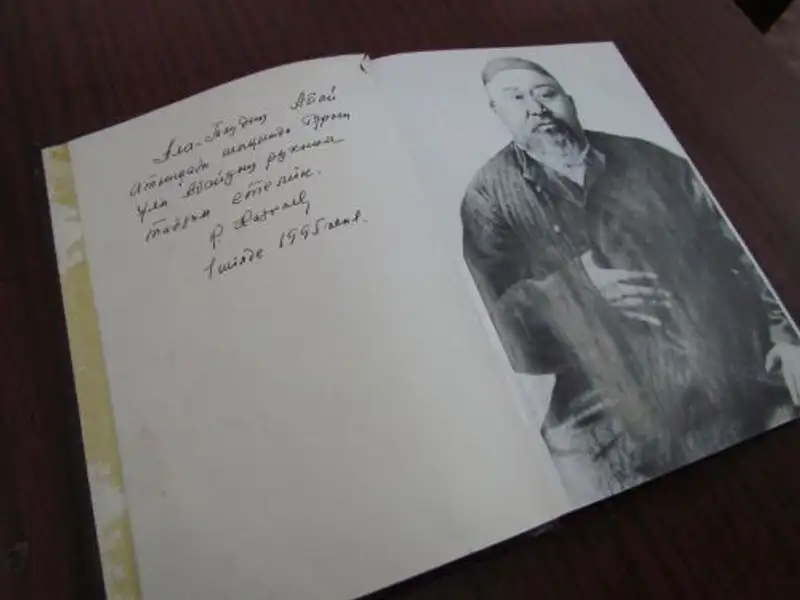 Ала-Таудың Абай
атындағы шыңында Тұрып
ұлы Абайдың рухына
тағзым етемін.
1 шілде 1995 жыл.